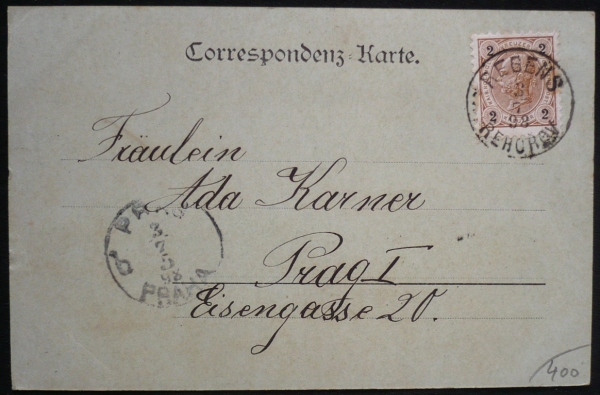 Correspondenz-Karte.
2 KREUZER 2
2 2
REGENS
31
7
98
REHOROV
Fräulein
Ada Karner
Prag I
Eisengasse 20.
PRAHA
400